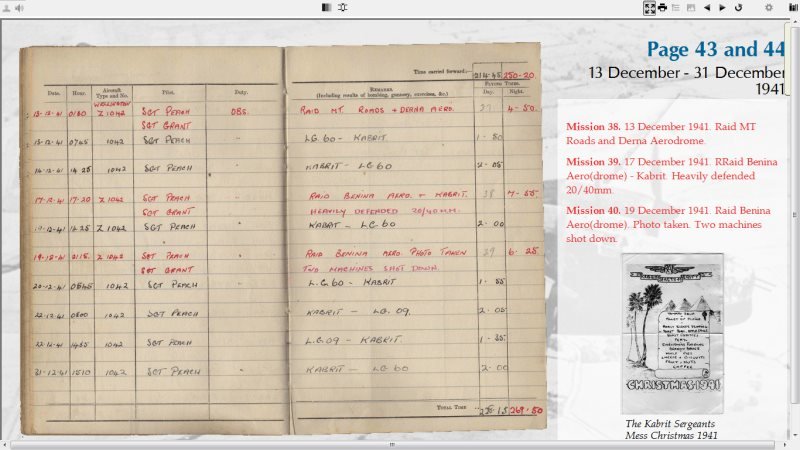 Time carried forward:— 214·45 250·20
Date. Hour. Aircraft Type and No. Pilot. Duty. Remarks (including results of bombing, gunnery, exercises, &c.) Flying Times. Day. Night.
WELLINGTON
13-12-41 0130 Z 1042 SGT PEACH OBS. RAID MT. ROADS + DERNA AERO. 37 4-50.
SGT GRANT
13-12-41 0745 1042 SGT PEACH " LG. 60 - KABRIT 1-50
14-12-41 14 25 1042 SGT PEACH " KABRIT - LG 60 2-05
17-12-41 17-20 Z 1042 SGT PEACH " RAID BENINA AERO. + KABRIT. 38 7-55.
SGT GRANT HEAVILY DEFENDED 20/40 M.M.
19-12-41 1425 1042 SGT PEACH " KABRIT - LG 60 2-00
19-12-41 2115. Z 1042 SGT PEACH " RAID BENINA AERO. PHOTO TAKEN 39 6-25
SGT GRANT TWO MACHINES SHOT DOWN.
20-12-41 0845 1042 SGT PEACH " L.G. 60 - KABRIT
22-12-41 0800 1042 SGT PEACH " KABRIT - LG. 09. 2-05
22-12-41 1042 SGT PEACH " L.G. 09 - KABRIT.
31-12-41 1510 1042 SGT PEACH " KABRIT - LG 60 2-00
TOTAL TIME 269·50
Page 43 and 44
13 December - 31 December
1941
Mission 38. 13 December 1941. Raid MT
Roads and Derna Aerodrome.
Mission 39. 17 December 1941. RRaid Benina
Aero(drome) - Kabrit. Heavily defended
20/40mm.
Mission 40. 19 December 1941. Raid Benina
Aero(drome). Photo taken. Two machines
shot down.
CHRISTMAS 1941
The Kabrit Sergeants
Mess Christmas 1941